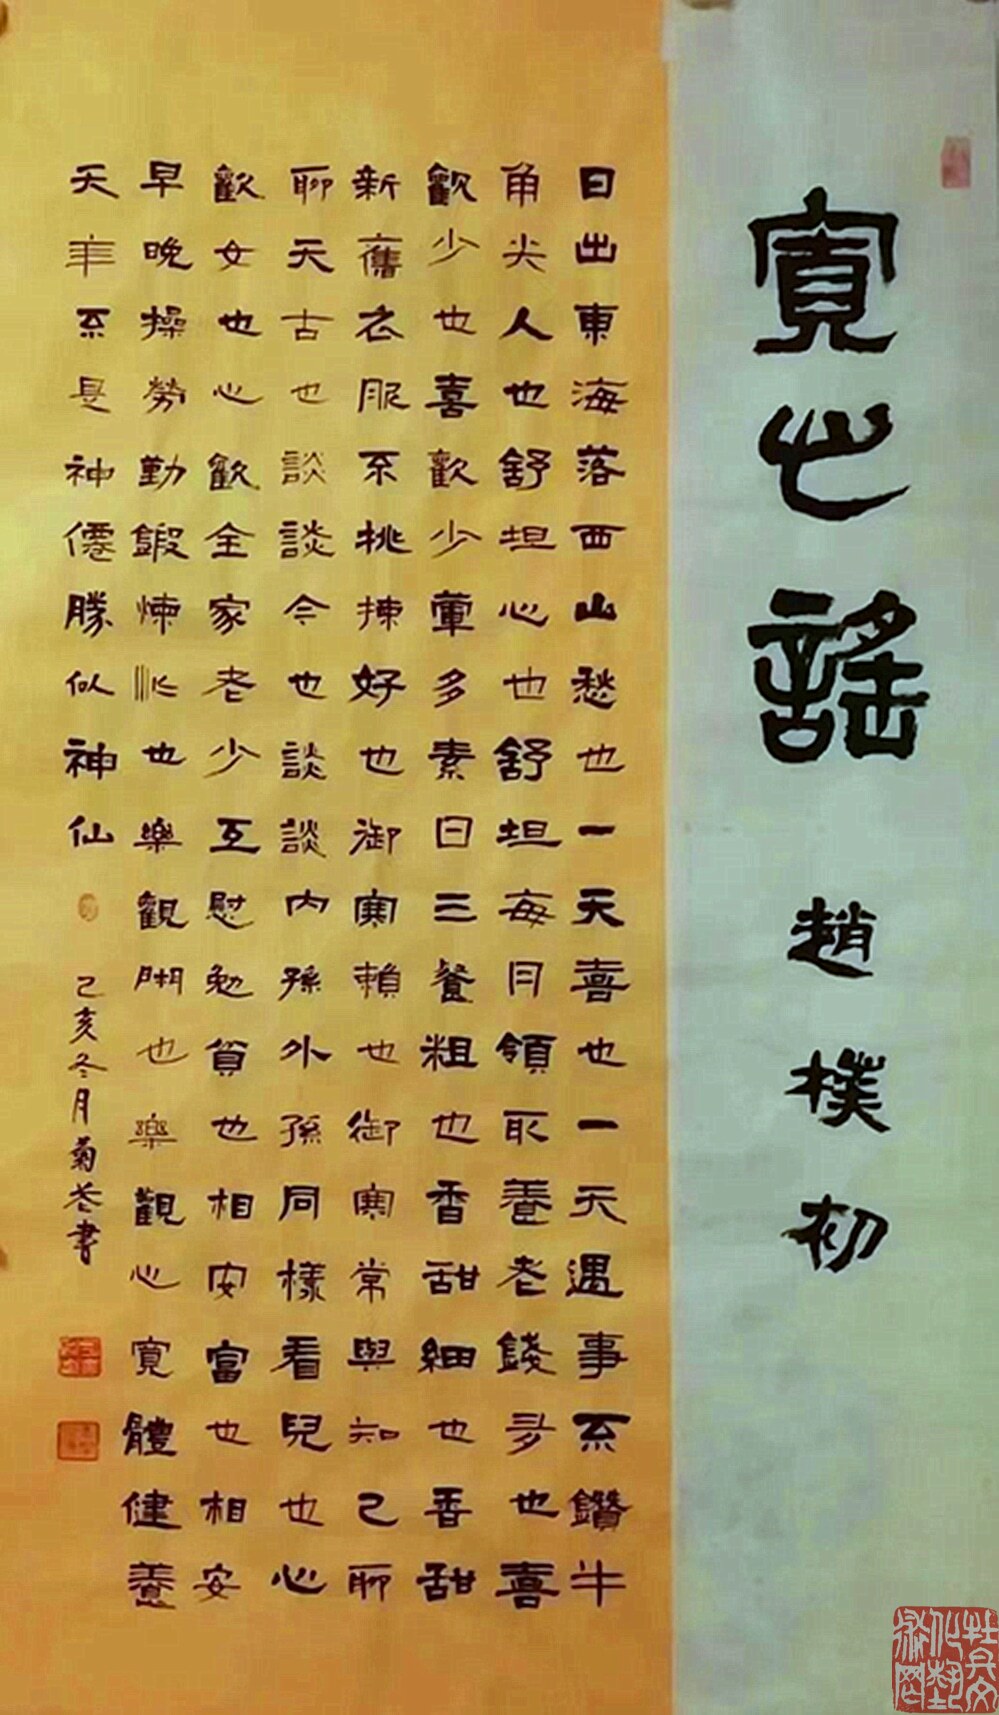 寬心謠
趙樸初
日出東海落西山愁也一天喜也一天遇事不鑽牛
角尖人也舒坦心也舒坦每月領取養老錢多也喜
歡少也喜歡少葷多素日三餐粗也香甜細也香甜
新舊衣服不挑揀好也御寒賴也御寒常與知己聊
聊天古也談談今也談談內孫外孫同樣看兒也心
歡女也心歡全家老少互慰勉貧也相安富也相安
早晚操勞勤鍛煉忙也樂觀閑也樂觀心寬體健養
天年不是神僊勝似神仙
己亥冬月菊書